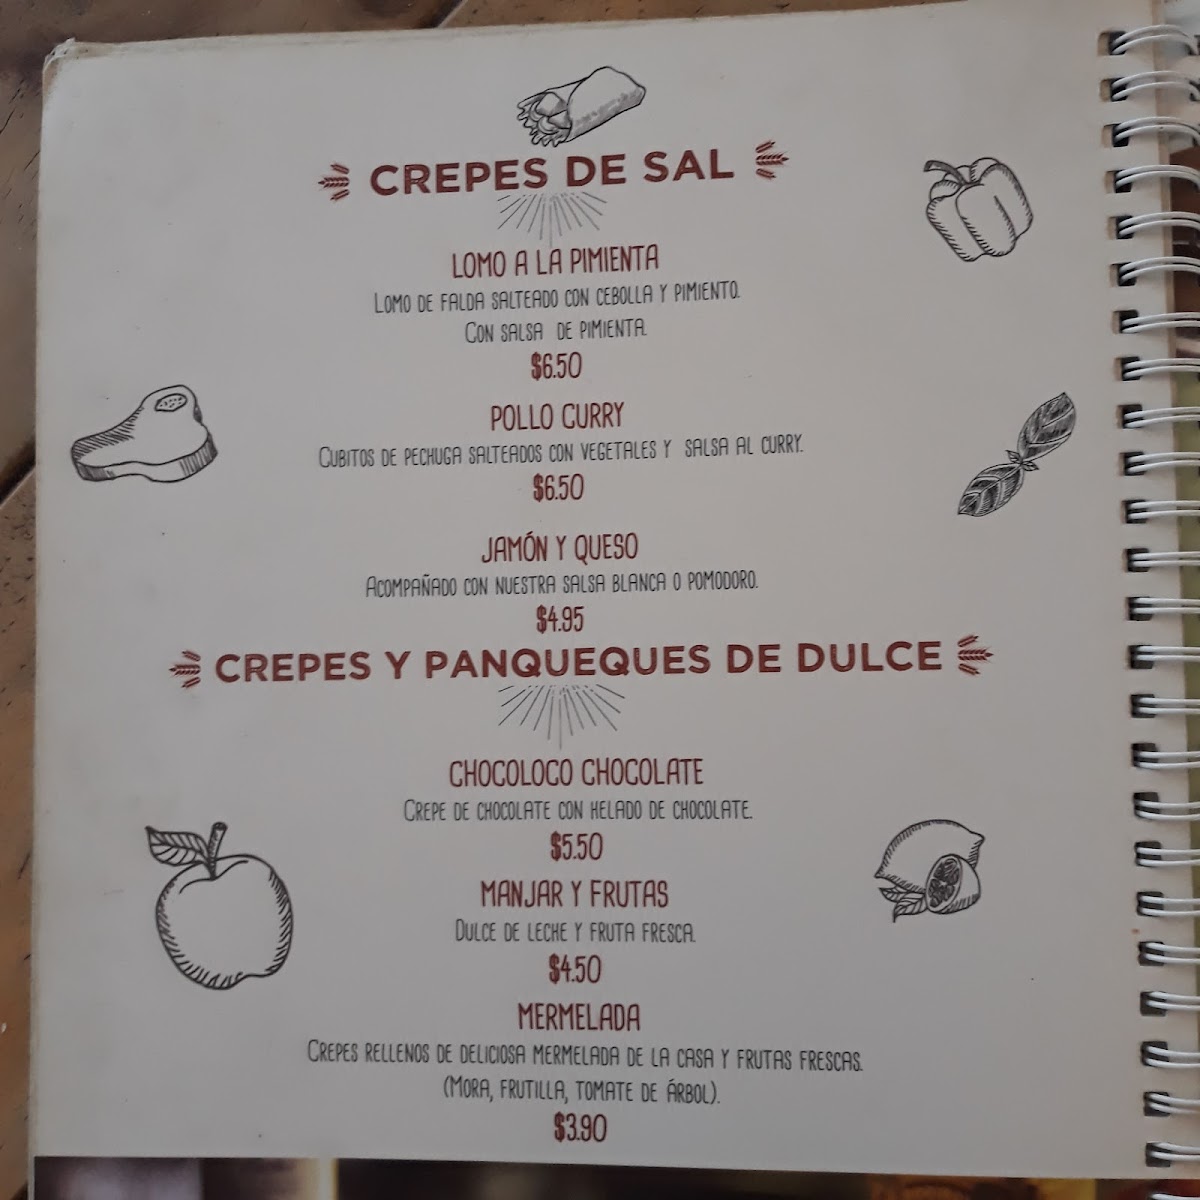 CREPES DE SAL
LOMO A LA PIMIENTA
LOMO DE FALDA SALTEADO CON CEBOLLA Y PIMIENTO.
CON SALSA DE PIMIENTA.
$6.50
POLLO CURRY
CUBITOS DE PECHUGA SALTEADOS CON VEGETALES Y SALSA AL CURRY.
$6.50
JAMÓN Y QUESO
ACOMPAÑADO CON NUESTRA SALSA BLANCA O POMODORO.
$4.95
CREPES Y PANQUEQUES DE DULCE
CHOCOLOCO CHOCOLATE
CREPE DE CHOCOLATE CON HELADO DE CHOCOLATE.
$5.50
MANJAR Y FRUTAS
DULCE DE LECHE Y FRUTA FRESCA.
$4.50
MERMELADA
CREPES RELLENOS DE DELICIOSA MERMELADA DE LA CASA Y FRUTAS FRESCAS.
(MORA, FRUTILLA, TOMATE DE ÁRBOL).
$3.90